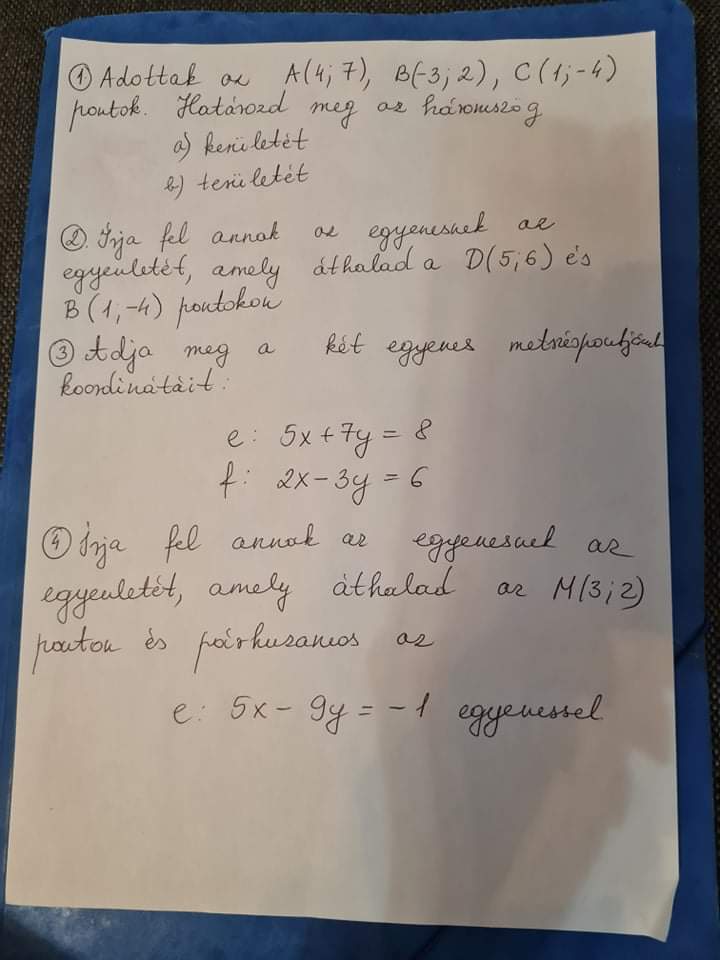 ① Adottak az A(4; 7), B(-3; 2), C(1; -4)
pontok. Határozd meg az háromszög
a) kerületét
b) területét
②. Írja fel annak az egyenesnek az
egyenletét, amely áthalad a D(5; 6) és
B(1; -4) pontokon
③ Adja meg a két egyenes metszéspontjának
koordinátáit:
e: 5x + 7y = 8
f: 2x - 3y = 6
④ Írja fel annak az egyenesnek az
egyenletét, amely áthalad az M(3; 2)
ponton és párhuzamos az
e: 5x - 9y = -1 egyenessel